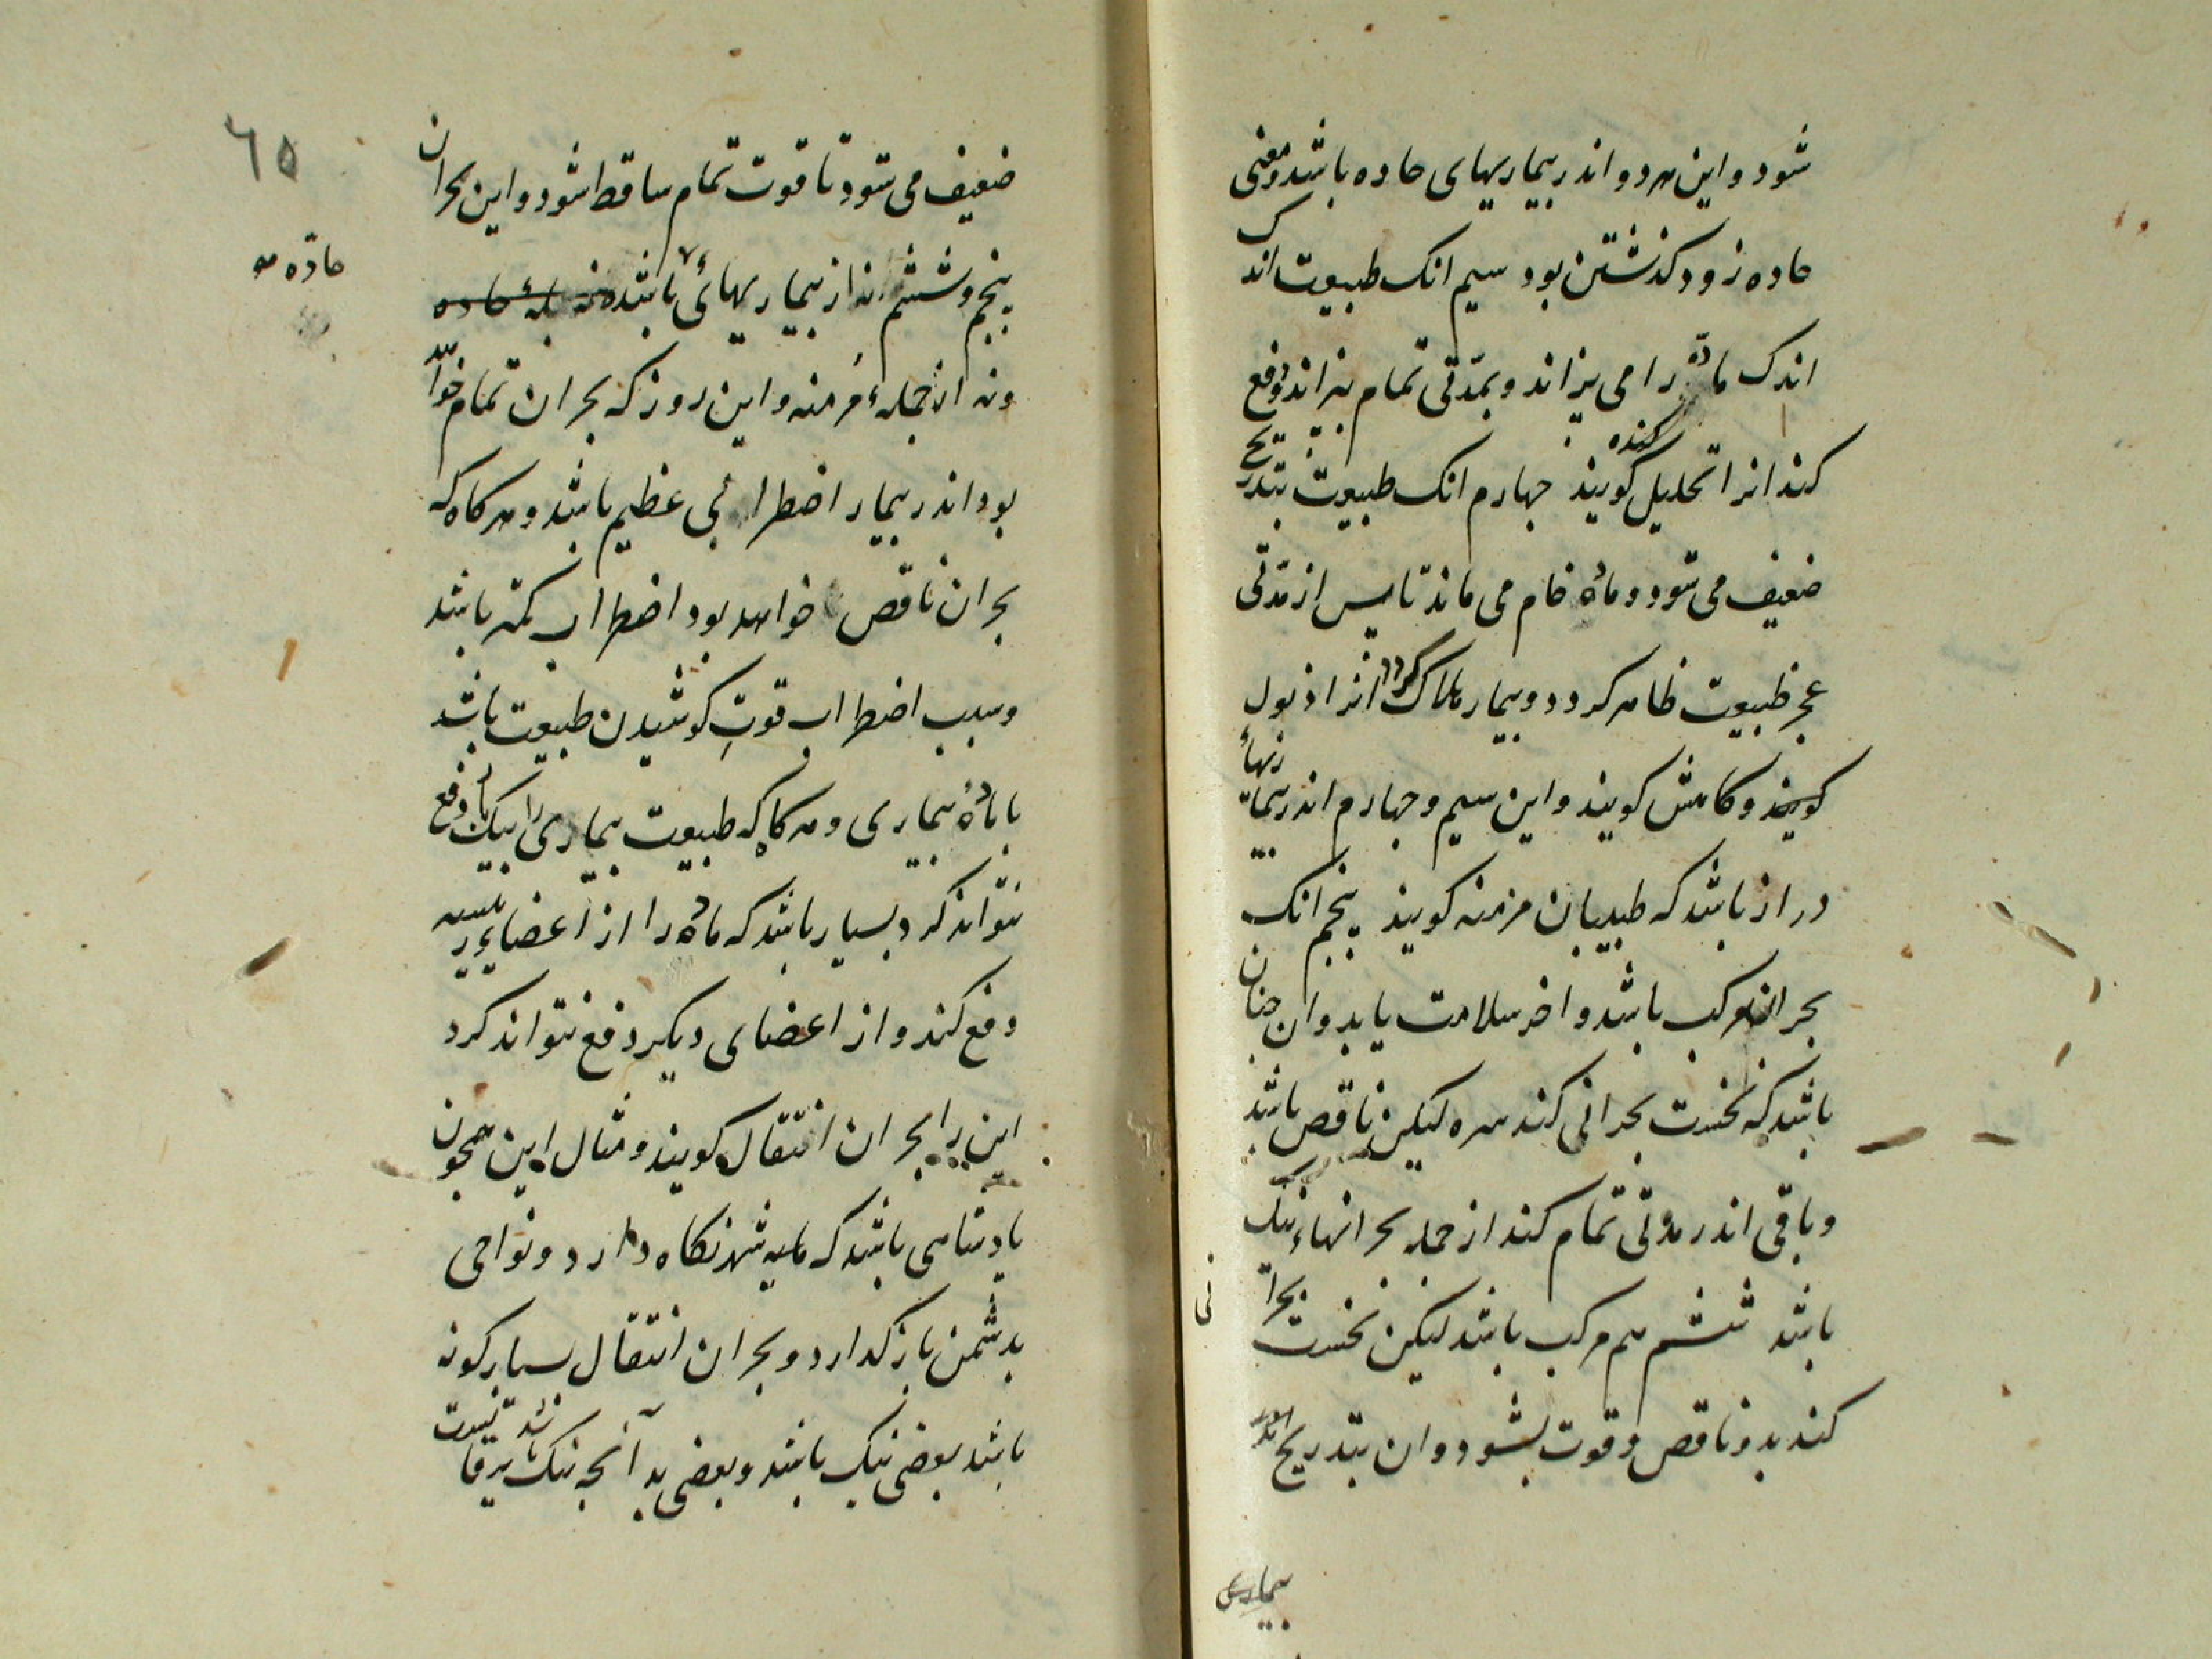 شود و این هر دو اندر بیماریهای حاده باشد و معنی
حاده زود کذشتن بود سیم انک طبیعت اندک
اندک ماده را می پزاند و بمدّتی تمام بپزاند و دفع
کند انرا تحلیل کویند جهارم انک طبیعت بتدریج
ضعیف می شود و ماده خام می ماند تا پس از مدّتی
عجز طبیعت ظاهر کردد و بیمار هلاک کردد انرا ذبول
کویند و کاهش کویند و این سیم و جهارم اندر بیماریهاء
دراز باشد که طبیبان مزمنه کویند پنجم انک
بحران مرکب باشد و اخر سلامت یابد و ان جنان
باشد که نخست بحرانی کند سره لیکن ناقص باشد
و باقی اندر مدّتی تمام کند از جمله بحرانهاء نیک
باشد ششم هم مرکب باشد لیکن نخست بحرانی
کند بد و ناقص و قوت بشود و ان بتدریج اندر
بیماری
٦٥
ضعیف می شود تا قوت تمام ساقط شود و این بحران
پنجم و ششم اندر بیماریهائی باشد نه از جمله حاده
حادّه
ونه از جملهٔ مزمنه و این روز که بحران تمام خواهد
بود اندر بیمار اضطرابی عظیم باشد و هر کاه که
بحران ناقص خواهد بود اضطراب کمتر باشد
و سبب اضطراب قوتِ کوشیدن طبیعت باشد
با مادهٔ بیماری و هر کاه که طبیعت بیماری را بیکبار دفع
نتواند کرد بسیار باشد که ماده را از اعضایِ رییسه
دفع کند و از اعضای دیکر دفع نتواند کرد
این را بحران انتقال کویند و مثال این همجون
پادشاهی باشد که مایه شهر نکاه دارد و نواحی
بدشمن باز کدارد و بحران انتقال بسیار کونه
باشد بعضی نیک باشد و بعضی بد آنجه نیک باشد یرقانست